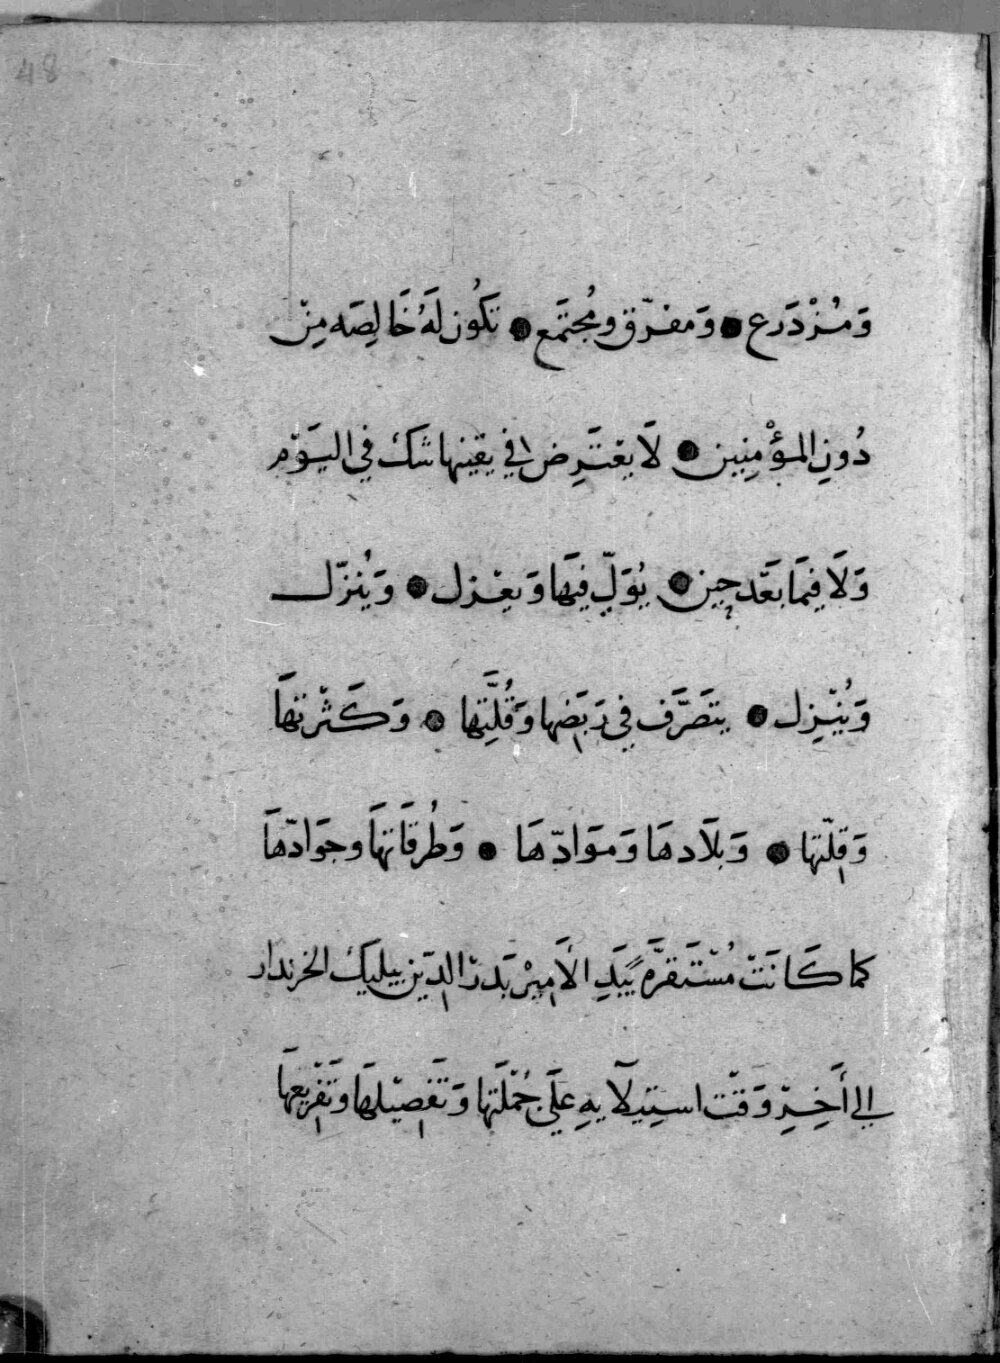 48
وَمُزْدَرع ● وَمفرّق ومُجتَمع ● تكُون لَهُ خَالِصَه مِنْ
دُونِ المؤْمِنِين ● لَا يعْتَرِض في يقينها شك في اليَوْم
وَلَا فيمَا بَعَّد حِين ● يُوَلّي فيَها وَيعْزل ● وَيُنزّل
وَيُنْزِل ● يتصَرَّف في رَبَضِها وَقُلَّتِها ● وَكَثْرتهَا
وَقِلّتها ● وَبلَادهَا وَموَادّهَا ● وَطُرقَاتهَا وجوَادّهَا
كما كَانَتْ مُسْتَقرَّه بيَدِ الأَمِيرْ بَدرْ الدّين بيليَك الخزندار
إلى أَخِرِ وَقْت استِيلآيهِ عَلَى جُمْلَتها وَتَفصِيْلهَا وَتَفْرِيْعهَا